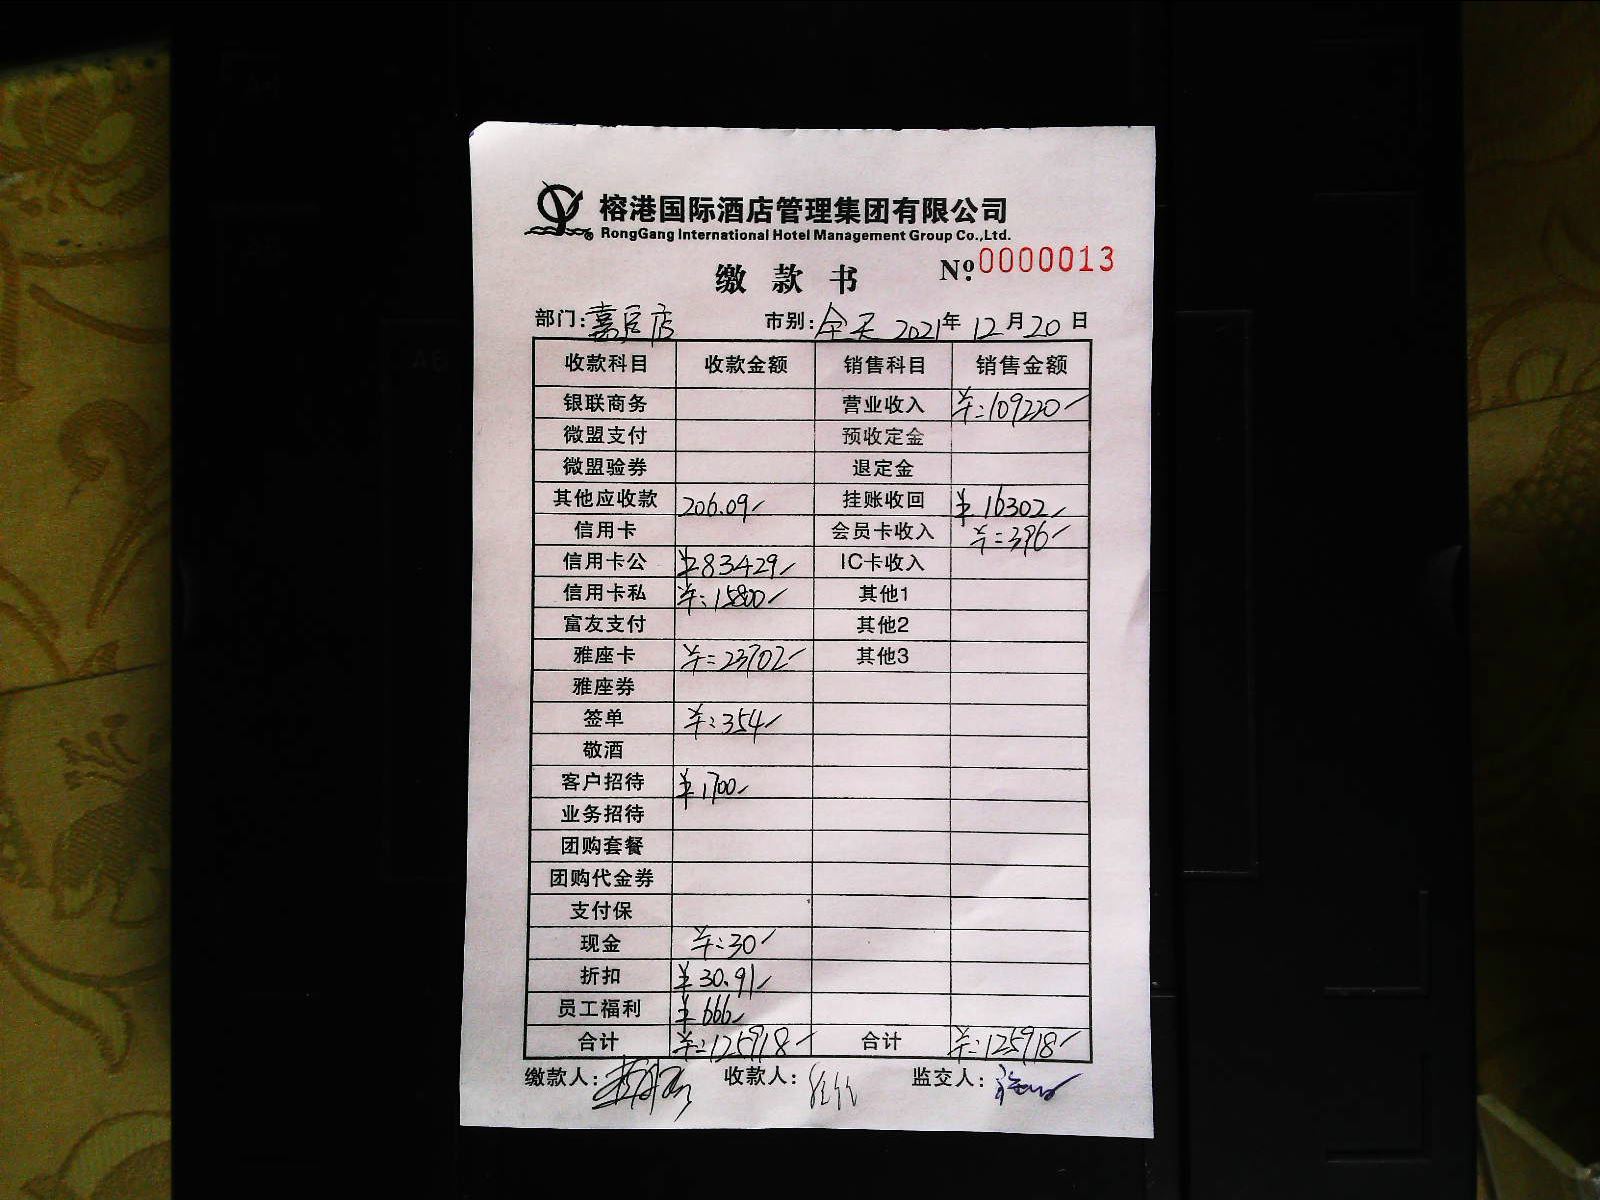 榕港国际酒店管理集团有限公司
RongGang International Hotel Management Group Co.,Ltd.
缴款书 №.0000013
部门: 店 市别: 全天 2021年12月20日
收款科目 收款金额 销售科目 销售金额
银联商务 营业收入 ¥:109220
微盟支付 预收定金
微盟验券 退定金
其他应收款 206.09 挂账收回 ¥16302
信用卡 会员卡收入 ¥:396
信用卡公 ¥83429 IC卡收入
信用卡私 ¥:15800 其他1
富友支付 其他2
雅座卡 ¥:23702 其他3
雅座券
签单 ¥:354
敬酒
客户招待 ¥1700
业务招待
团购套餐
团购代金券
支付保
现金 ¥:30
折扣 ¥30.91
员工福利 ¥666
合计 ¥:125918 合计 ¥:125918
缴款人: 收款人: 监交人: